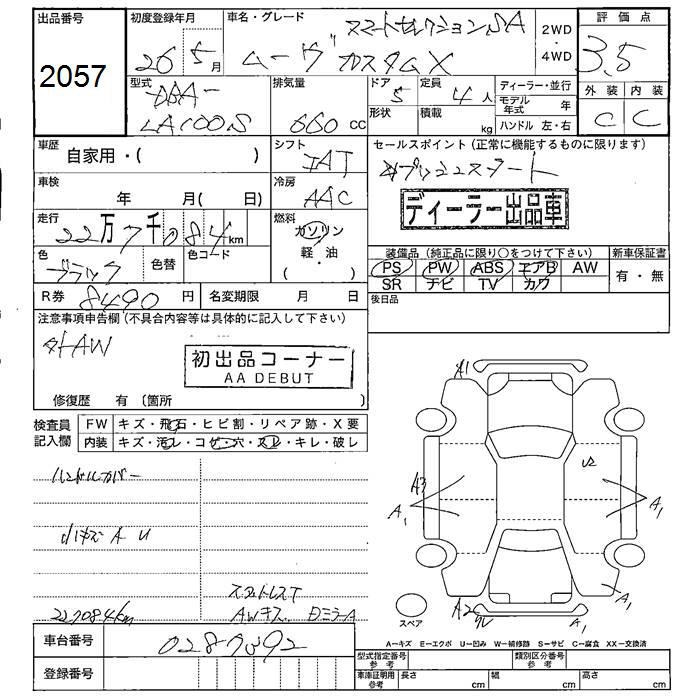 出品番号 初度登録年月 車名・グレード 評価点
2057 26 5月 スマートセレクションSA
ムーヴ カスタムX 2WD ・ 4WD 3.5
型式 排気量 ドア 定員 ディーラー・並行 外装 内装
DBA- 5 4人 モデル年式 年
LA100S 660cc 形状 積載 kg ハンドル 左・右 C C
車歴 自家用・( ) シフト IAT セールスポイント (正常に機能するものに限ります)
プッシュスタート
車検 年 月( 日) 冷房 AAC
ディーラー出品車
走行 22万7千084km 燃料 ガソリン・軽・油・( )
色 ブラック 色替 色コード
装備品 (純正品に限り○をつけて下さい) 新車保証書
PS PW ABS エアB AW 有・無
SR ナビ TV カワ
R券 8490円 名変期限 月 日 後日品
注意事項申告欄 (不具合内容等は具体的に記入して下さい)
社外AW
初出品コーナー
AA DEBUT
修復歴 有 (箇所 )
検査員記入欄 FW キズ・飛石・ヒビ割・リペア跡・X要
内装 キズ・汚レ・コゲ・穴・スレ・キレ・破レ
ハンドルカバー
小キズ A U
227084km AWキズ Dミラー A
A1
A3 U2
A1 A1
A2 A1 A1
スペア
A-キズ E-エクボ U-凹み W-補修跡 S-サビ C-腐食 XX-交換済
車台番号 0287392
登録番号
型式指定番号 参考 類別区分番号 参考
車庫証明用 参考 長さ cm 幅 cm 高さ cm